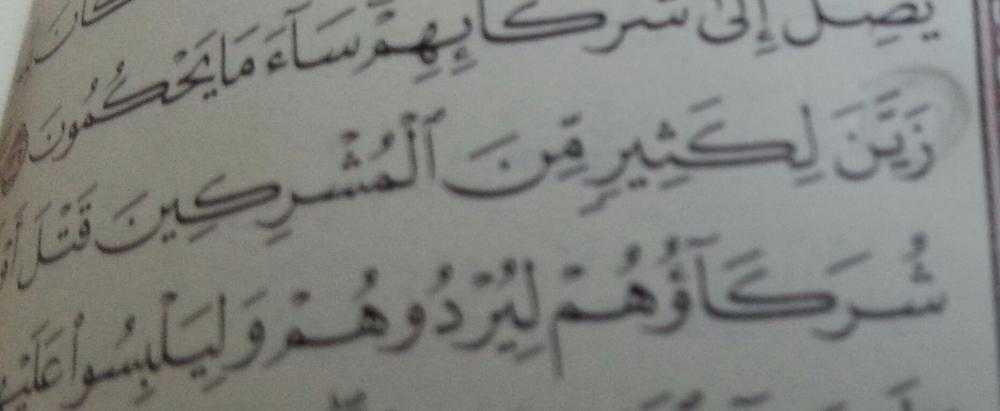 يَصِلُ إِلَىٰ شُرَكَآئِهِمْ سَآءَ مَا يَحْكُمُونَ
زَيَّنَ لِكَثِيرٍ مِّنَ ٱلْمُشْرِكِينَ قَتْلَ
شُرَكَآؤُهُمْ لِيُرْدُوهُمْ وَلِيَلْبِسُوا۟